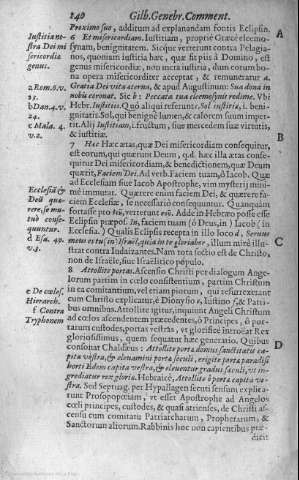 240 Gilb. Genebr. Comment.
Proximo suo, additum ad explanandam fontis Eclipsin.
6 Et misericordiam. Iustitiam, propriè Græcè eleemo-
synam, benignitatem. Sicque verterunt contra Pelagia-
nos, quoniam iustitia hæc, quæ sit piis à Domino, est
genus misericordiæ, non mera iustitia, dum eorum bo-
na opera misericorditer acceptat, & remuneratur a.
Gratia Dei vita æterna, & apud Augustinum: Sua dona in
nobis coronat. Sic b: Peccata tua eleemosynis redime. Vbi
Hebr. Iustitiis. Quò aliqui referunt: Sol iustitiæ, i. beni-
gnitatis. Sol, qui benignè lumen, & calorem suum imper-
tit. Alij Iustitiam, i. fructum, siue mercedem suæ virtutis,
& iustitiæ.
7 Hæc Hæc ætas quæ Dei misericordiam consequitur,
est eorum, qui quærunt Deum, q.d. hæc illa ætas conse-
quitur Dei misericordiam, & benedictionem, quæ Deum
quærit, Faciem Dei. Ad verb. Faciem tuam, ô Iacob. Quæ
ad Ecclesiam siue Iacob Apostrophe, vim mysterij mini-
mè immutat. Quærere enim faciem Dei, & quærere fa-
ciem Ecclesiæ, se necessariò consequuntur. Quanquam
Eclipsis præpos. In, faciem tuam (ô Deus, in) Iacob (in
Ecclesia.) Qualis Eclipsis recepta in illo loco d, Seruus
meus es tu (in) Israël, quia in te gloriabor, illum mirè illu-
strat contra Iudaizantes. Nam tota sectio est de Christo,
non de Israële, siue Israëlitico populo.
8 Attollite portas. Ascensio Christi per dialogum Ange-
lorum partim in cælo consistentium, partim Christum
cum Christo explicatur, è Dionysio e, Iustino f, & Patri-
bus omnibus. Attollite igitur, inquiunt Angeli Christum
ad cælos ascendentem præcedentes, ô Principes, ô por-
tarum custodes, portas vestras, vt glorificè introëat Rex
gloriosissimus, quem sequitur hæc generatio. Quibus
consonat Chaldæus: Attollite porta domus sanctitatis ca-
pita vestra, & eleuamini porta seculi, erigite porta paradisi
horti Edem capita vestra, & eleuentur gradus seculi, vt in-
grediatur rex gloria. Hebraicè, Attollite ô porta capita ve-
stra. Sed Septuag. per Hypallagen sensum explica-
runt Prosopopœiam, vt esset Apostrophe ad Angelos
cæli principes, custodes, & quasi atrienses, de Christi as-
censu cum comitatu Patriarcharum, Prophetarum, &
Sanctorum aliorum. Rabbinis hoc non capientibus præ-
dicit
Iustitia no-
stra Dei mi
sericordia
genus.
a Rom. 6. v.
b Dan. 4. v.
24.
c Mala. 4.
v. 2.
Ecclesiã &
Deũ quæ-
rere, se mu-
tuò conse-
quuntur.
d Esa. 49.
v. 3.
e De cœlest.
Hierarch.
f Contra
Tryphonem
A
B
C
D